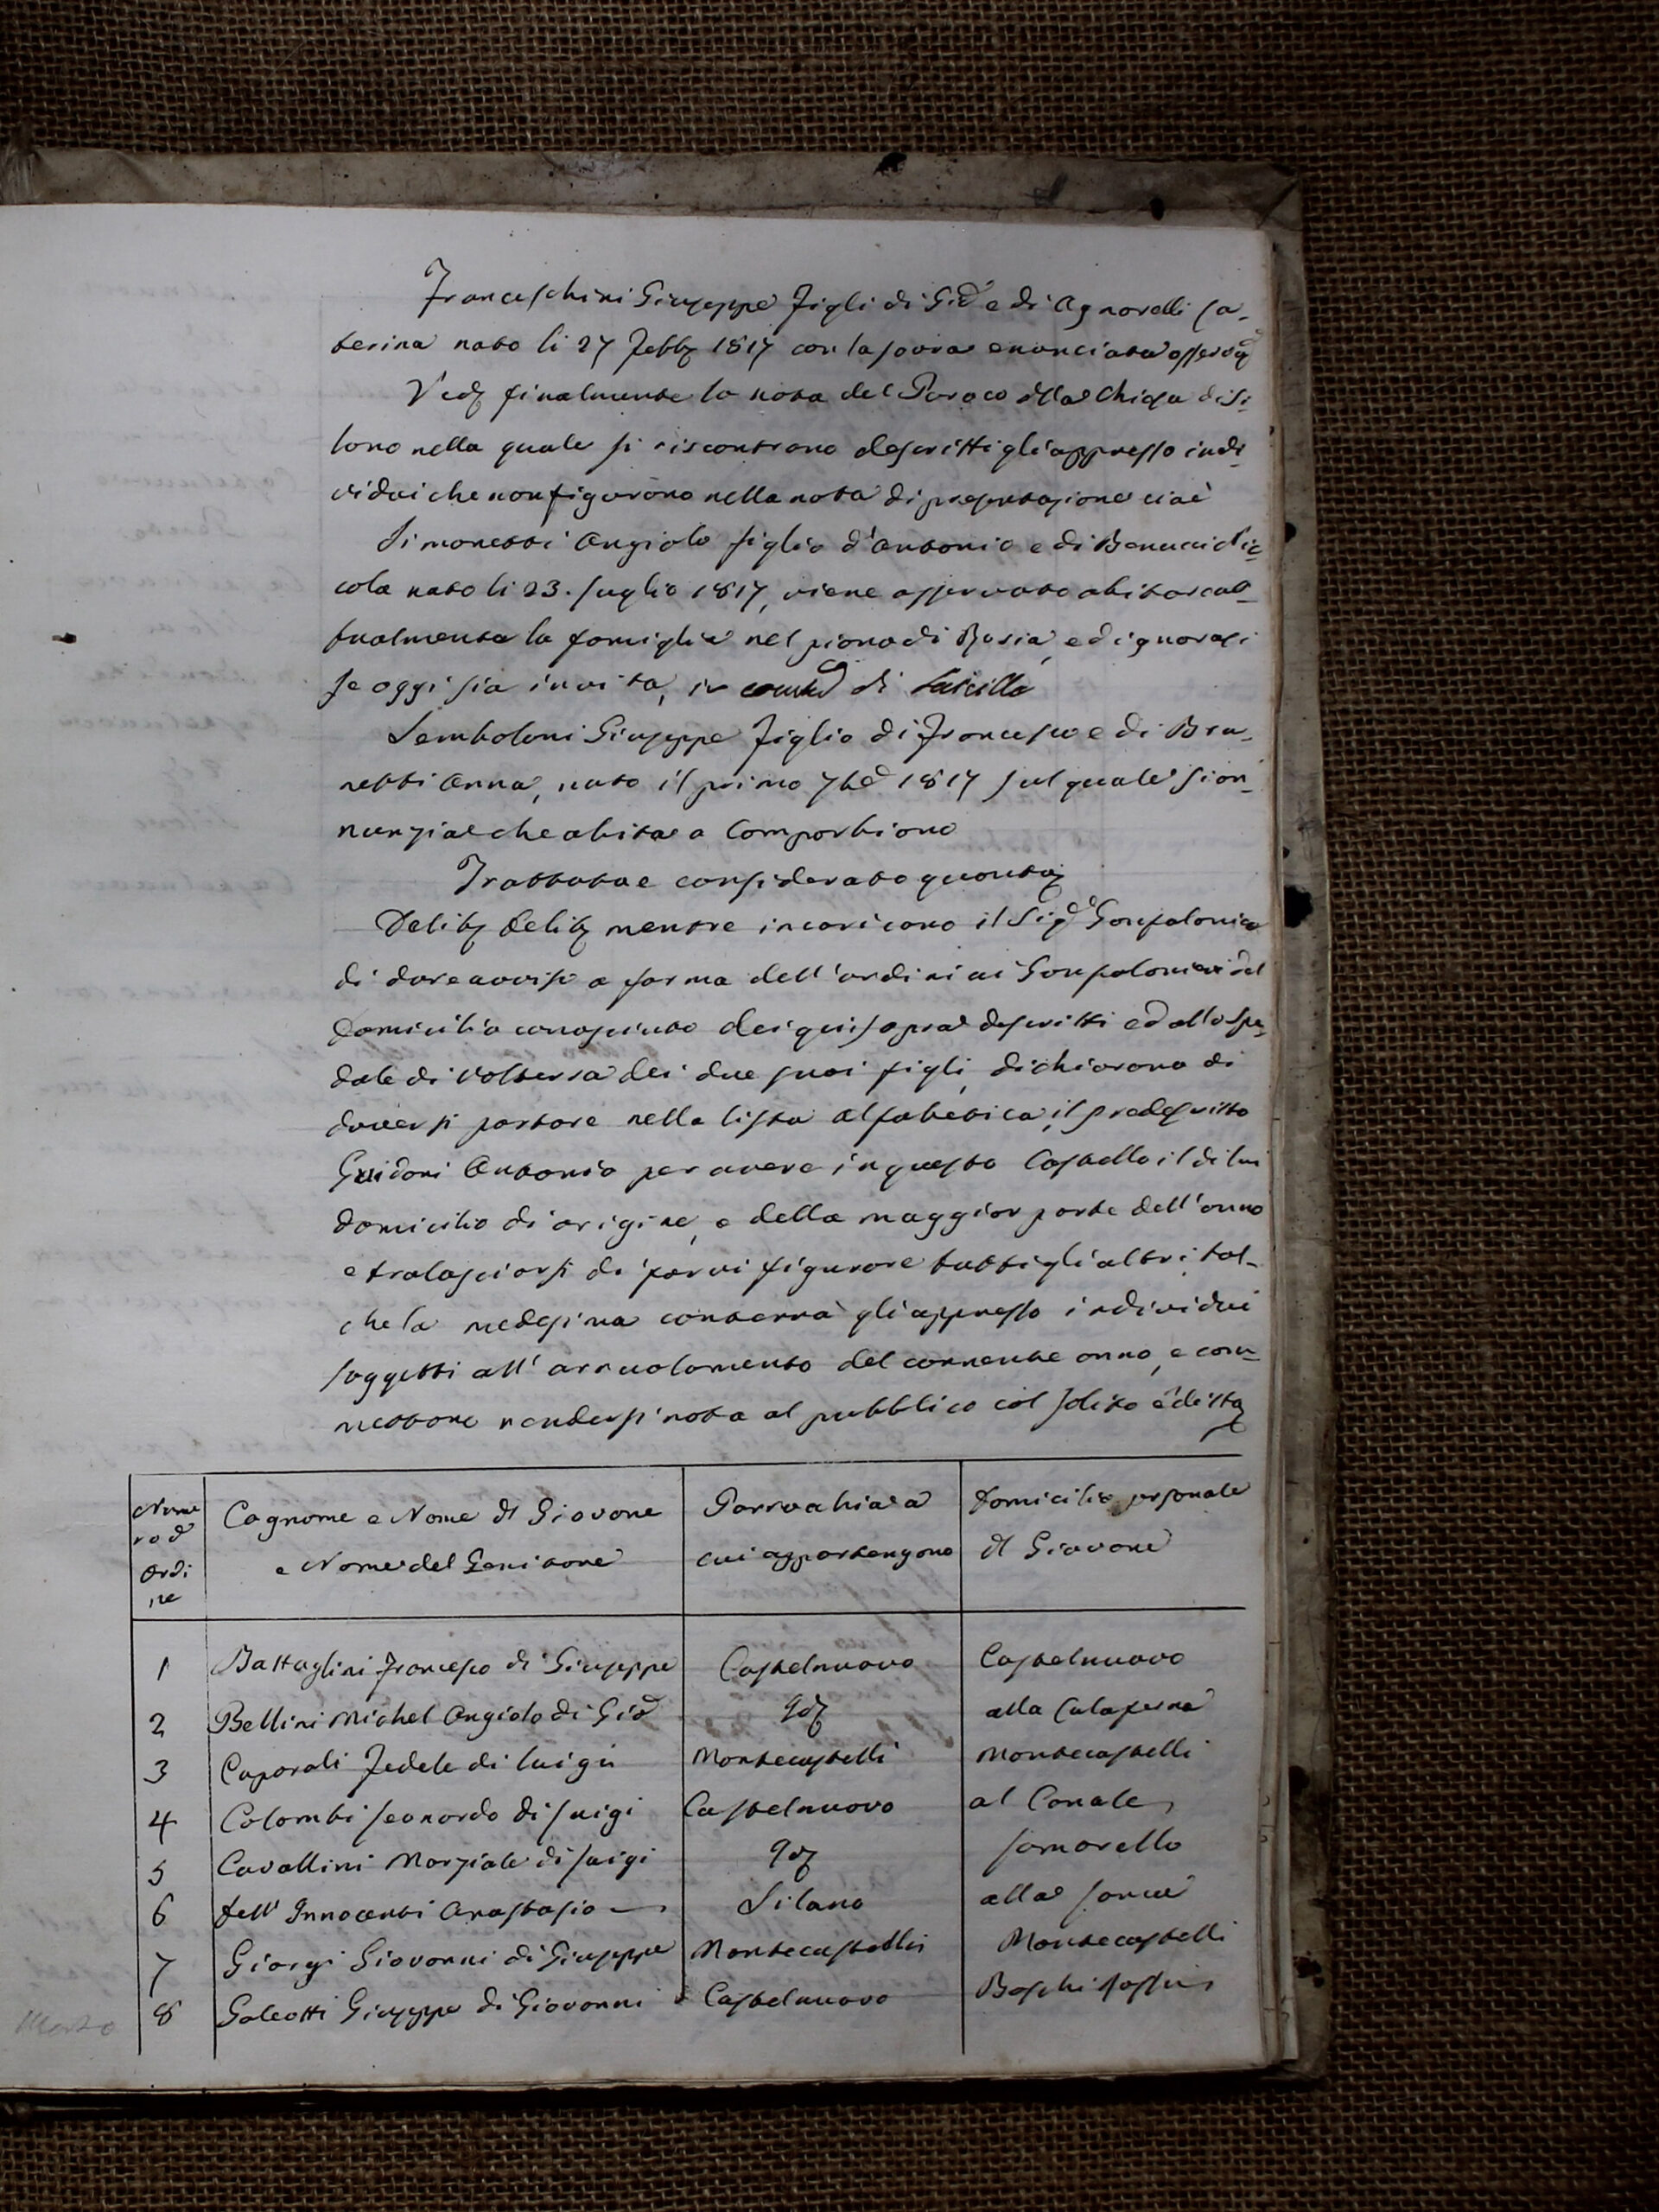 Franceschini Giuseppe figli di Gio e di Agnorelli Ca-
terina nato li 27 Febb 1817 con la sovra enunciata osservaz
Ved finalmente la nota del Paroco della Chiesa di Si-
lano nella quale si riscontrano descritti gli appresso indi-
vidui che non figurono nella nota di presentazione cioè
Simonetti Angiolo figlio d'Antonio e di Benucci Ni-
cola nato li 23. Luglio 1817, viene osservato abitare at-
tualmente la famiglia nel piano di Pisa, ed ignorasi
se oggi sia in vita, in di
Semboloni Giuseppe figlio di Francesco e di Bru-
netti Anna, nato il primo 7bre 1817 sul quale si an-
nunzia che abita a Comporbiano
Trattato e considerato quanto
Delib Delib mentre incaricano il Sig Gonfaloniere
di dare avviso a forma dell'ordini ai Gonfalonieri del
Domicilio conosciuto dei qui sopra descritti ed allo Spe-
dale di Volterra dei due suoi figli, dichiarano di
doversi portare nella lista alfabetica, il predescritto
Guidoni Antonio per avere in questo Castello il di lui
domicilio di origine, e della maggior parte dell'anno
e tralasciarsi di farvi figurare tutti gli altri, tal-
che la medesima conterrà gli appresso individui
soggetti all'arruolamento del corrente anno, e com-
mettono rendersi nota al pubblico col solito editto
Nume Cognome e Nome del Giovane Parrocchia a Domicilio personale
ro d'
Ordi e Nome del Genitore cui appartengono del Giovane
ne
1 Battaglini Francesco di Giuseppe Castelnuovo Castelnuovo
2 Bellini Michel Angiolo di Gio alla
3 Caporali Fedele di Luigi Montecastelli Montecastelli
4 Colombi Leonardo di Luigi Castelnuovo al Canale
5 Cavallini Marziale di Luigi
6 dell'Innocenti Anastasio Silano alla
7 Giorgi Giovanni di Giuseppe Montecastelli Montecastelli
8 Galeotti Giuseppe di Giovanni Castelnuovo